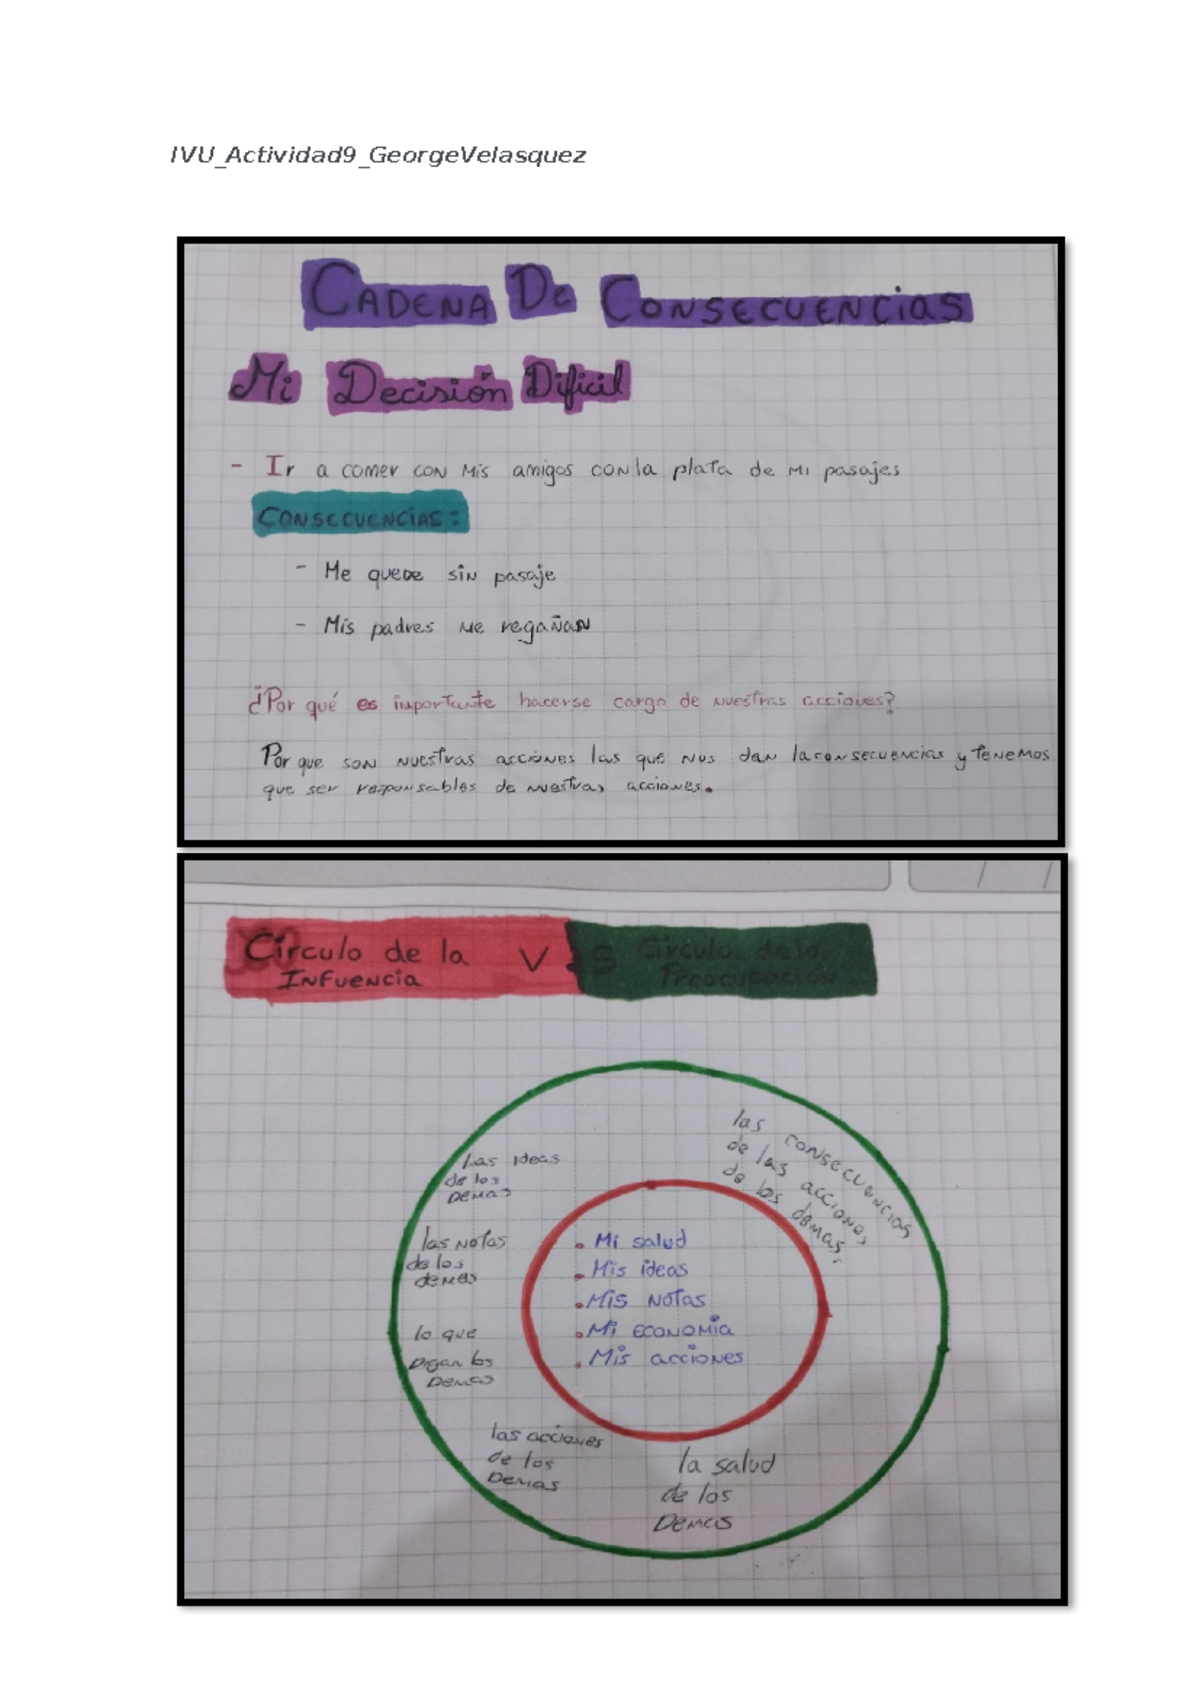 IVU_Actividad9_GeorgeVelasquez
CADENA De CONSECUENCiAS
Mi Decisión Dificil
- Ir a comer con mis amigos con la plata de mi pasajes
CONSECUENCIAS:
- Me quede sin pasaje
- Mis padres me regañan
¿Por qué es importante hacerse cargo de nuestras acciones?
Por que son nuestras acciones las que nos dan la consecuencias y tenemos
que ser responsables de nuestras acciones.
Círculo de la VS Circulo de la
INFuencia Preocupación
las consecuencias
de las acciones
de los demas.
Las ideas
de los
Demas
las notas
de los
demas
lo que
Digan los
Demas
las acciones
de los
Demas
la salud
de los
Demas
• Mi salud
• Mis ideas
• Mis notas
• Mi economía
• Mis acciones